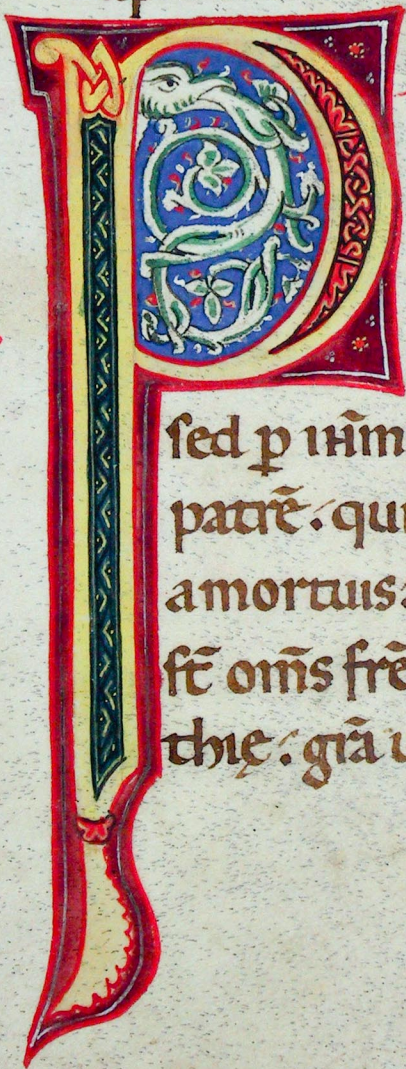 P
sed p̱ ihm̄
patrē. qui
amortuis.
st̄ om̄s frē
thię. gr̄a u